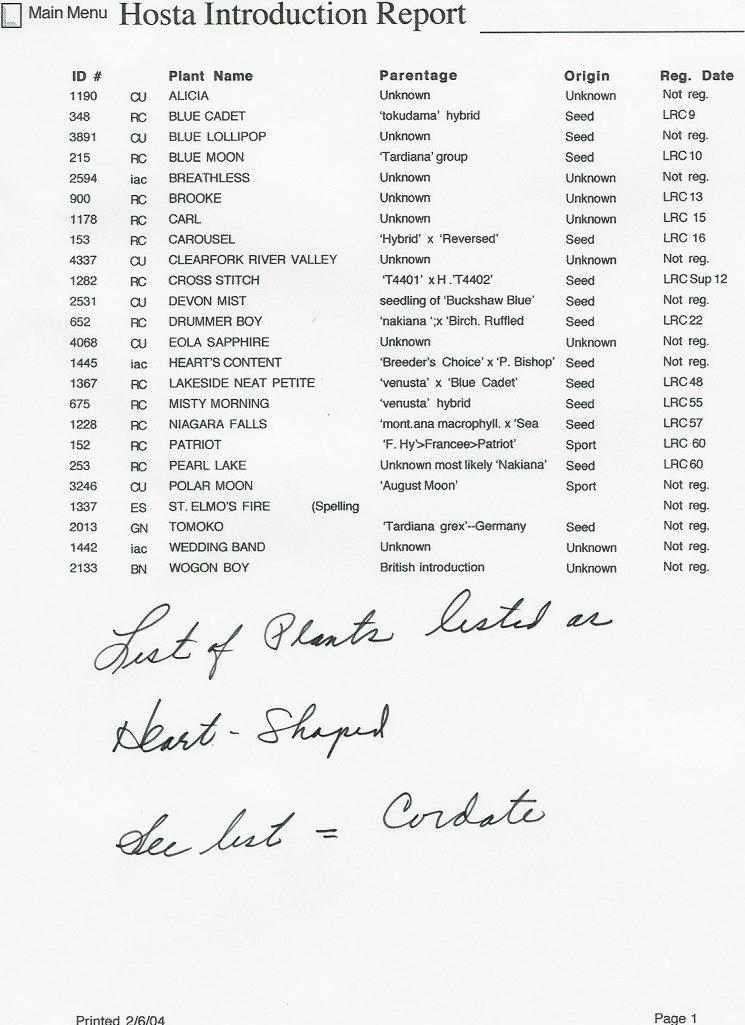 Main Menu Hosta Introduction Report
ID # Plant Name Parentage Origin Reg. Date
1190 CU ALICIA Unknown Unknown Not reg.
348 RC BLUE CADET 'tokudama' hybrid Seed LRC9
3891 CU BLUE LOLLIPOP Unknown Seed Not reg.
215 RC BLUE MOON 'Tardiana' group Seed LRC10
2594 iac BREATHLESS Unknown Unknown Not reg.
900 RC BROOKE Unknown Unknown LRC13
1178 RC CARL Unknown Unknown LRC 15
153 RC CAROUSEL 'Hybrid' x 'Reversed' Seed LRC 16
4337 CU CLEARFORK RIVER VALLEY Unknown Unknown Not reg.
1282 RC CROSS STITCH 'T4401' x H .'T4402' Seed LRC Sup 12
2531 CU DEVON MIST seedling of 'Buckshaw Blue' Seed Not reg.
652 RC DRUMMER BOY 'nakiana ';x 'Birch. Ruffled Seed LRC22
4068 CU EOLA SAPPHIRE Unknown Unknown Not reg.
1445 iac HEART'S CONTENT 'Breeder's Choice' x 'P. Bishop' Seed Not reg.
1367 RC LAKESIDE NEAT PETITE 'venusta' x 'Blue Cadet' Seed LRC48
675 RC MISTY MORNING 'venusta' hybrid Seed LRC55
1228 RC NIAGARA FALLS 'mont.ana macrophyll. x 'Sea Seed LRC57
152 RC PATRIOT 'F. Hy'>Francee>Patriot' Sport LRC 60
253 RC PEARL LAKE Unknown most likely 'Nakiana' Seed LRC60
3246 CU POLAR MOON 'August Moon' Sport Not reg.
1337 ES ST. ELMO'S FIRE (Spelling Not reg.
2013 GN TOMOKO 'Tardiana grex'--Germany Seed Not reg.
1442 iac WEDDING BAND Unknown Unknown Not reg.
2133 BN WOGON BOY British introduction Unknown Not reg.
List of Plants listed as
Heart-Shaped
See list = Cordate
Printed 2/6/04 Page 1